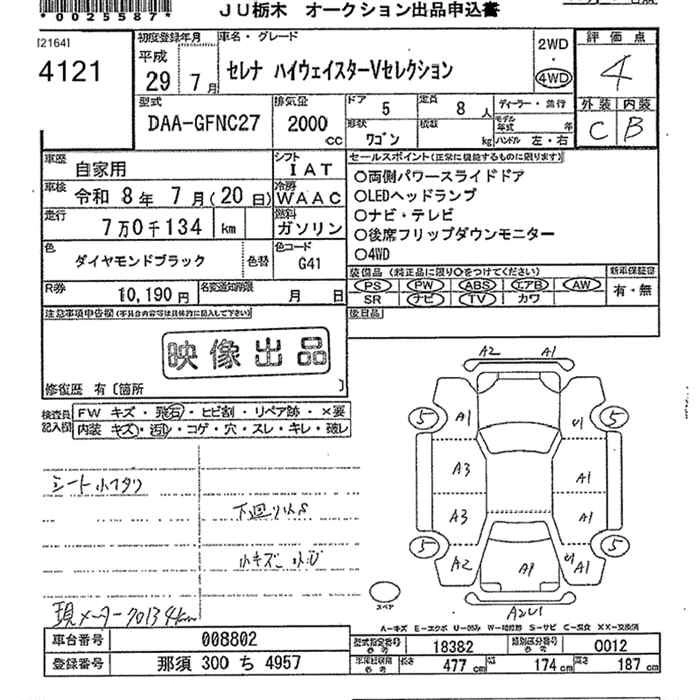 *0025587*
JU栃木 オークション出品申込書
21641
4121
初度登録年月
平成
29年 7月
車名・グレード
セレナ ハイウェイスターVセレクション
2WD
・
4WD
評価点
4
外装 内装
C B
型式
DAA-GFNC27
排気量
2000
cc
ドア 5
定員 8人
形状 ワゴン
積載 kg
ディーラー・並行
モデル年式 年
ハンドル 左・右
車歴
自家用
シフト
IAT
車検 令和 8年 7月(20日)
冷房
WAAC
走行
7万0千134 km
燃料
ガソリン
色
ダイヤモンドブラック
色替
色コード
G41
R券
10,190円
名変通知期限
月 日
セールスポイント(正常に機能するものに限ります)
○両側パワースライドドア
○LEDヘッドランプ
○ナビ・テレビ
○後席フリップダウンモニター
○4WD
装備品(純正品に限り○をつけてください)
PS PW ABS エアB AW
SR ナビ TV カワ
新車保証書
有・無
後日品
注意事項申告欄(不具合内容等は具体的に記入して下さい)
映像出品
修復歴 有〔箇所 〕
検査員記入欄
FW キズ・飛石・ヒビ割・リペア跡・×要
内装 キズ・汚レ・コゲ・穴・スレ・キレ・破レ
シート小スタリ
下廻り小S
小キズ 小U
現メーター70134km
A2 A1
5 A1 U1 5
A3 A1
A3 A1
5 A2 A1 U1 A1 5
A2U1
スペア
A-キズ E-エクボ U-凹み W-補修跡 S-サビ C-腐食 XX-交換済
車台番号
008802
登録番号
那須 300 ち 4957
型式指定番号
参考
18382
類別区分番号
参考
0012
車庫証明用
参考
長さ 477cm
巾 174cm
高さ 187cm